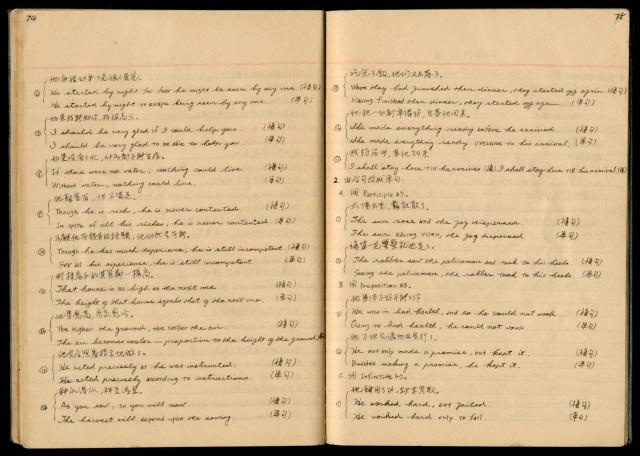 74
He started by night for fear he might be seen by any one. (複句)
He started by night to escape being seen by any one. (單句)
I should be very glad if I could help you. (複句)
I should be very glad to be able to help you. (單句)
If there were no water, nothing could live. (複句)
Without water, nothing could live. (單句)
Though he is rich, he is never contented. (複句)
In spite of all his riches, he is never contented. (單句)
Though he has much experience, he is still incompetent. (複句)
For all his experience, he is still incompetent. (單句)
That house is as high as the next one. (複句)
The height of that house equals that of the next one. (單句)
The higher the ground, the cooler the air. (複句)
The air becomes cooler in proportion to the height of the ground.
He acted precisely as he was instructed. (複句)
He acted precisely according to instructions. (單句)
種瓜得瓜, 種豆得豆.
As you sow, so you will mow. (複句)
The harvest will depend upon the sowing. (單句)
75
When they had finished their dinner, they started off again. (複句)
Having finished their dinner, they started off again. (單句)
She made everything ready before he arrived. (複句)
She made everything ready previous to his arrival. (單句)
I shall stay here till he arrives. (複) I shall stay here till his arrival. (單)
2. 由合句改成單句.
A. 用 Participle 的.
太陽出來, 霧就散了.
The sun rose and the fog dispersed. (合句)
The sun having risen, the fog dispersed. (單句)
The robber saw the policeman and took to his heels. (合句)
Seeing the policeman, the robber took to his heels. (單句)
B. 用 Preposition 的.
He was in bad health, and so he could not work. (合句)
Owing to bad health, he could not work. (單句)
He not only made a promise, but kept it. (合句)
Besides making a promise, he kept it. (單句)
C. 用 Infinitive 的.
He worked hard, but failed. (合句)
He worked hard only to fail. (單句)